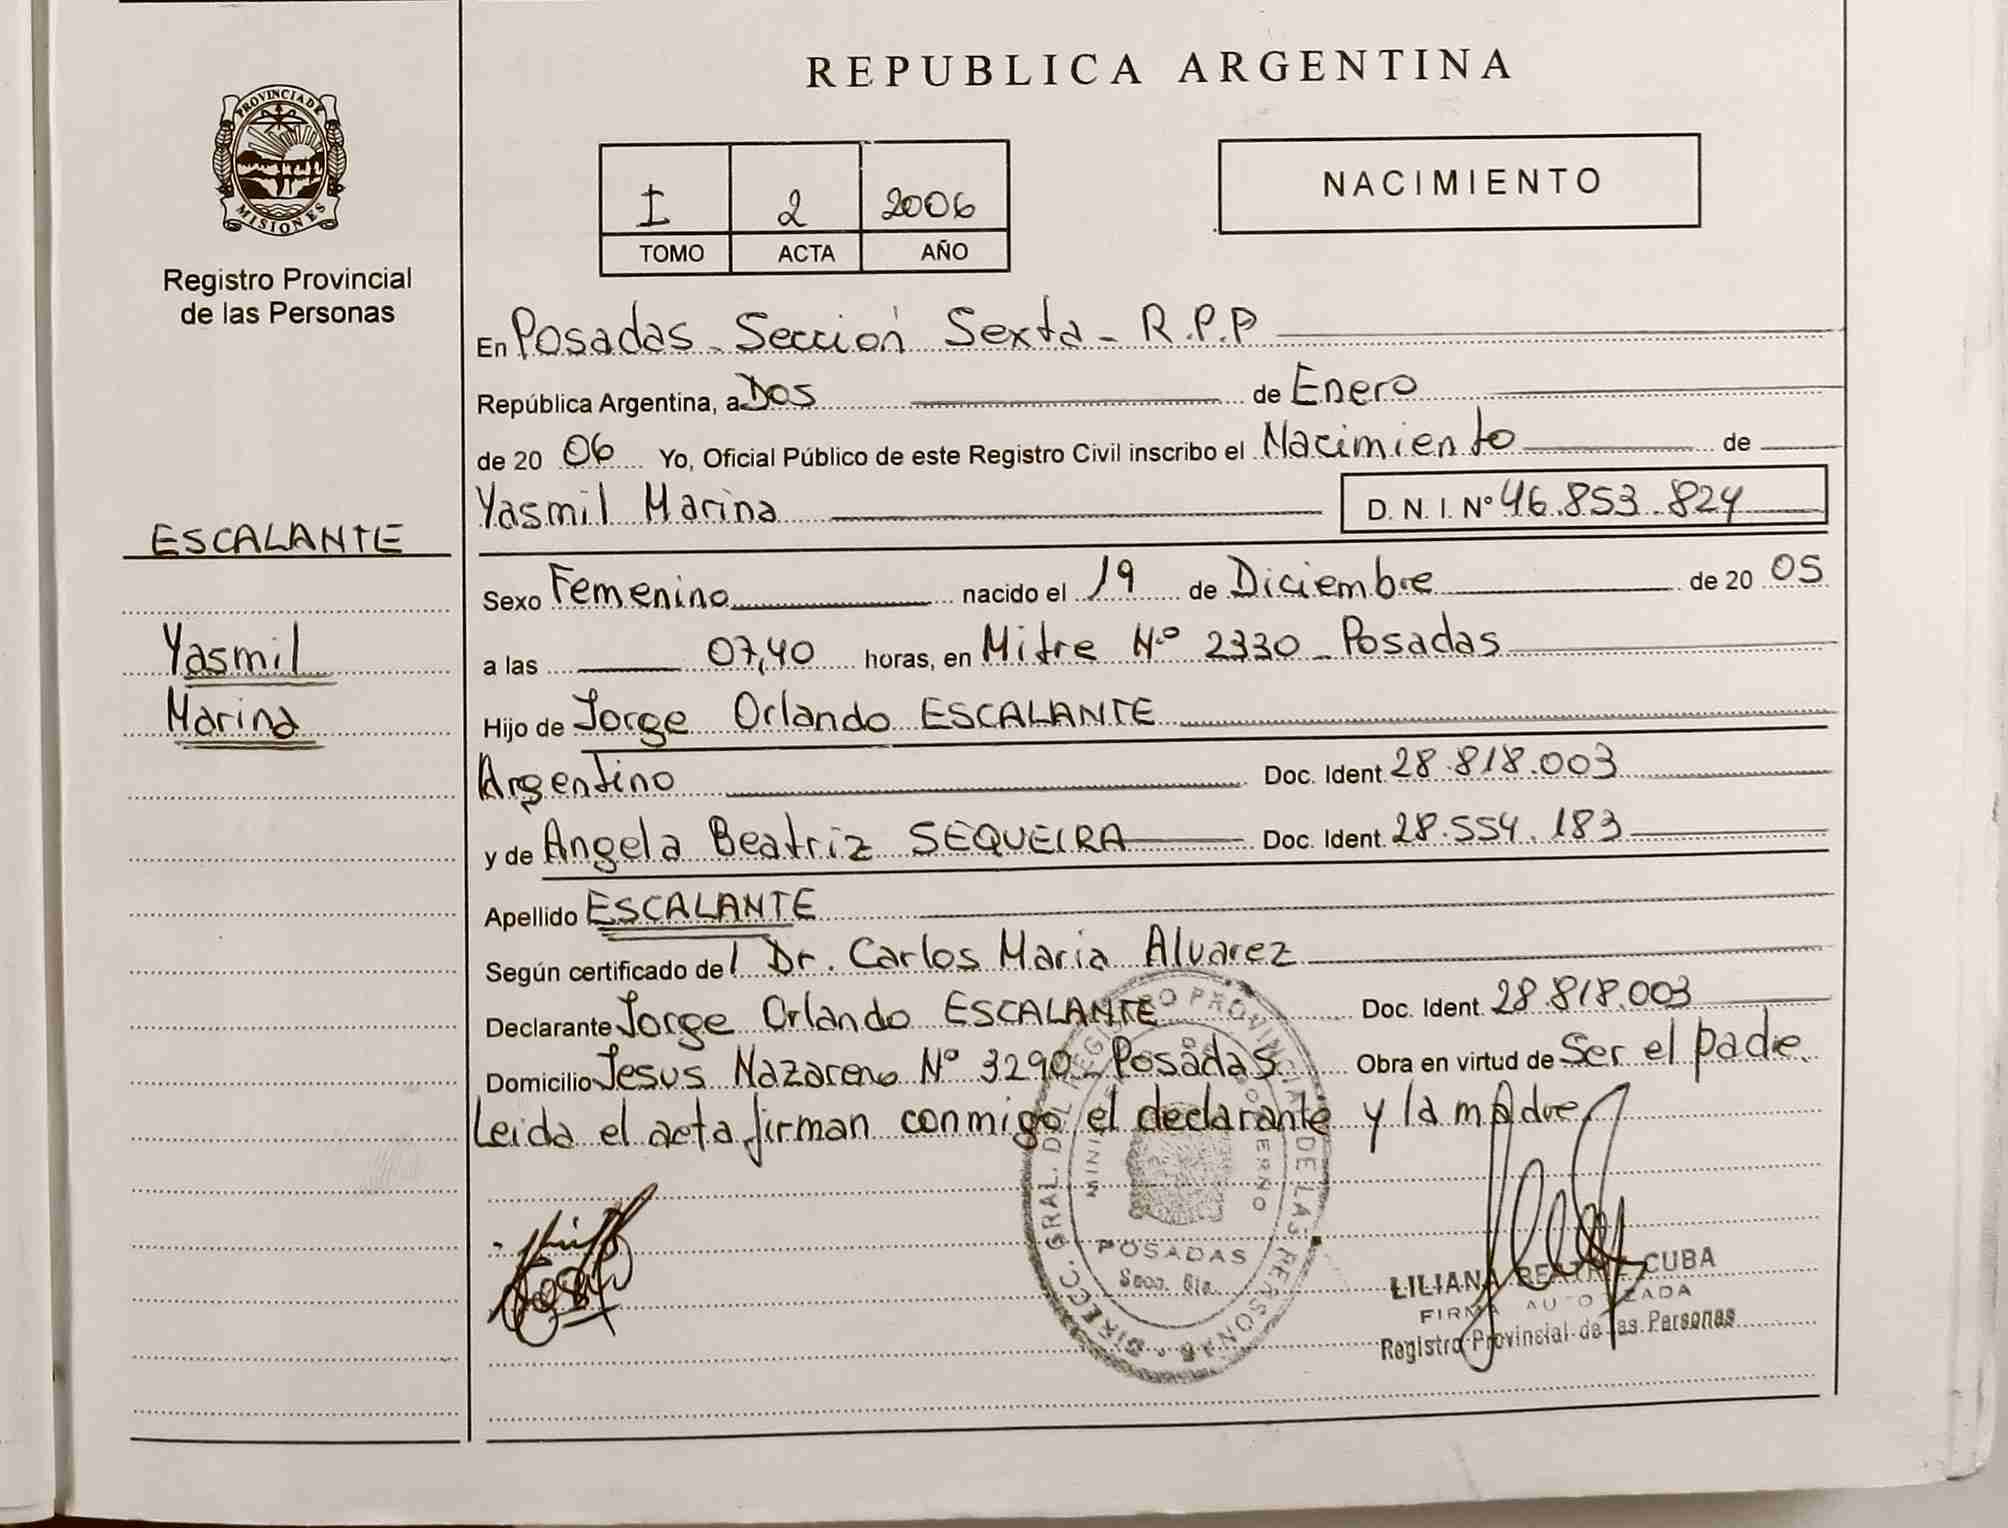 PROVINCIA DE
MISIONES
Registro Provincial
de las Personas
ESCALANTE
Yasmil
Marina
REPUBLICA ARGENTINA
I 2 2006
TOMO ACTA AÑO
NACIMIENTO
En Posadas - Sección Sexta - R.P.P
República Argentina, a Dos de Enero
de 20 06 Yo, Oficial Público de este Registro Civil inscribo el Nacimiento de
Yasmil Marina D. N. I. Nº 46.853.824
Sexo Femenino nacido el 19 de Diciembre de 20 05
a las 07,40 horas, en Mitre Nº 2330 - Posadas
Hijo de Jorge Orlando ESCALANTE
Argentino Doc. Ident. 28.818.003
y de Angela Beatriz SEQUEIRA Doc. Ident. 28.554.183
Apellido ESCALANTE
Según certificado del Dr. Carlos Maria Alvarez
Declarante Jorge Orlando ESCALANTE Doc. Ident. 28.818.003
Domicilio Jesus Nazareno Nº 3290 - Posadas Obra en virtud de Ser el padre.
Leida el acta firman conmigo el declarante y la madre
DIRECC. GRAL. DEL REGISTRO PROVINCIAL DE LAS PERSONAS
POSADAS
Secc. 6ta.
LILIANA BEATRIZ CUBA
FIRMA AUTORIZADA
Registro Provincial de las Personas